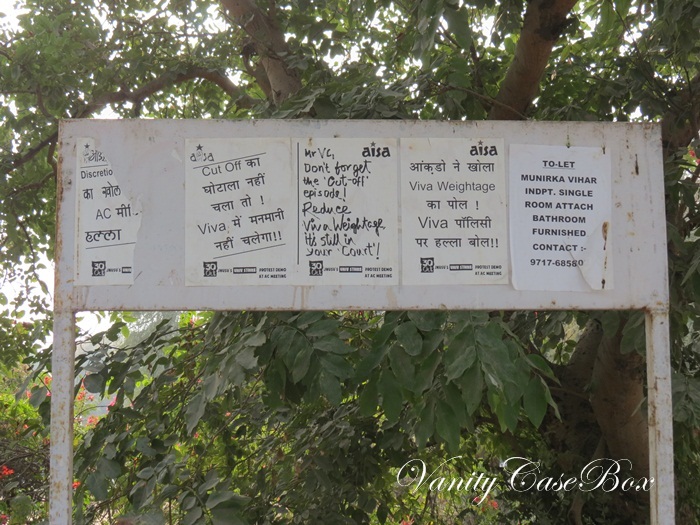 Discretio
का खोल
AC मीं
हल्ला
aisa
Cut Off का
घोटाला नहीं
चला तो !
Viva में मनमानी
नहीं चलेगा!!
PROTEST DEMO
AT AC MEETING
aisa
Mr VC,
Don't forget
the 'Cut-off'
episode!
Reduce
Viva Weightage,
It's still in
your 'Court'!
PROTEST DEMO
AT AC MEETING
aisa
आंकड़ो ने खोला
Viva Weightage
का पोल !
Viva पॉलिसी
पर हल्ला बोल!!
PROTEST DEMO
AT AC MEETING
TO-LET
MUNIRKA VIHAR
INDPT. SINGLE
ROOM ATTACH
BATHROOM
FURNISHED
CONTACT :-
9717-68580
VanityCaseBox